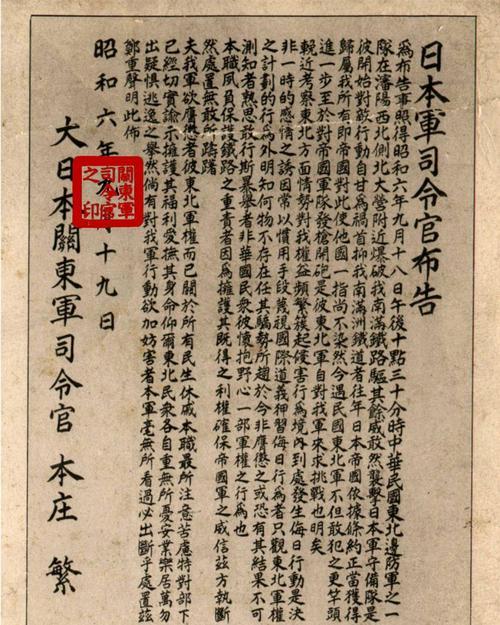 日本軍司令官布告
為布告事照得昭和六年九月十八日午後十點三十分時中華民國東北邊防軍之一
隊在瀋陽西北側北大營附近爆破我南滿鐵路驅其餘威敢然襲擊日本軍守備隊是
彼開始對敵行動自甘為禍首抑我南滿洲鐵道者往年日本帝國依據條約正當獲得
歸屬我所有即帝國對此使他國一指尚不染然今遇民國東北軍不但敢犯之更竿頭
進一步至於對帝國軍隊發槍開砲是彼東北軍自對我軍來求挑戰也明矣
輓近考察東北方面情勢對我權益頻繁簇起侵害行為境內到處發生侮日行動是決
非一時的感情之誘因常以慣用手段蔑視國際道義狎習侮日行為者只觀東北軍權
之計劃的行為外明知何物不存在任其驕勢所趨於今非膺懲之或恐有其結果不可
測知者熟思敢行斯暴舉者非華國民衆彼懷抱野心一部軍權之行為也
本職夙負保護鐵路之重責者因為擁護其既得之利權確保帝國軍之威信茲方執斷
然處置無敢所躊躇
夫我軍欲膺懲者彼東北軍權而已關於所有民生休戚本職最所注意苦慮特對部下
已經切實諭示擁護其福利愛撫其身命仰爾東北民衆各自重無所憂安業樂居萬勿
出疑惧逃逸之舉然倘有對我軍行動欲加妨害者本軍毫無所看過必出斷乎處置茲
鄭重聲明此佈
昭和六年九月十九日
大日本關東軍司令官 本庄 繁
關東軍
司令官
之印